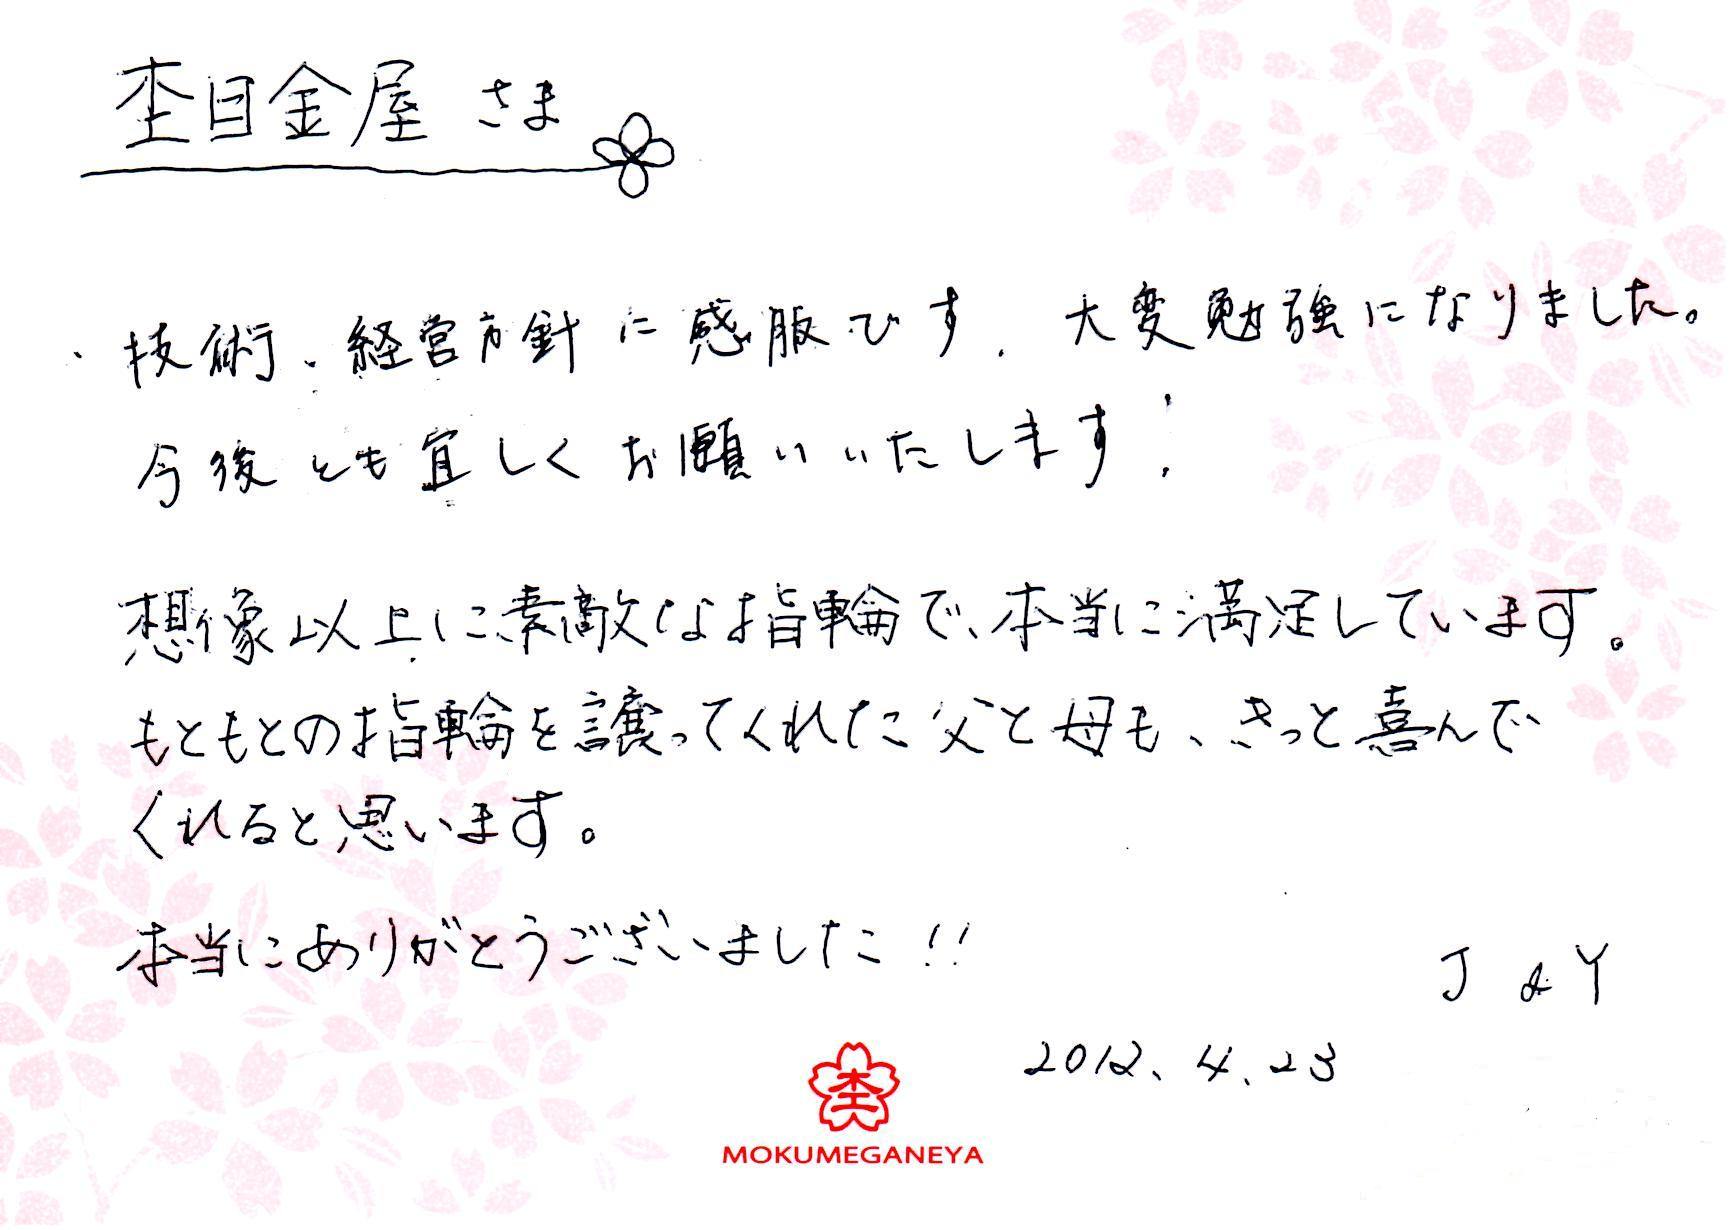 杢目金屋 さま
技術、経営方針に感服です。大変勉強になりました。
今後とも宜しくお願いいたします!
想像以上に素敵な指輪で、本当に満足しています。
もともとの指輪を譲ってくれた父と母も、きっと喜んで
くれると思います。
本当にありがとうございました!!
J & Y
2012.4.23
杢
MOKUMEGANEYA